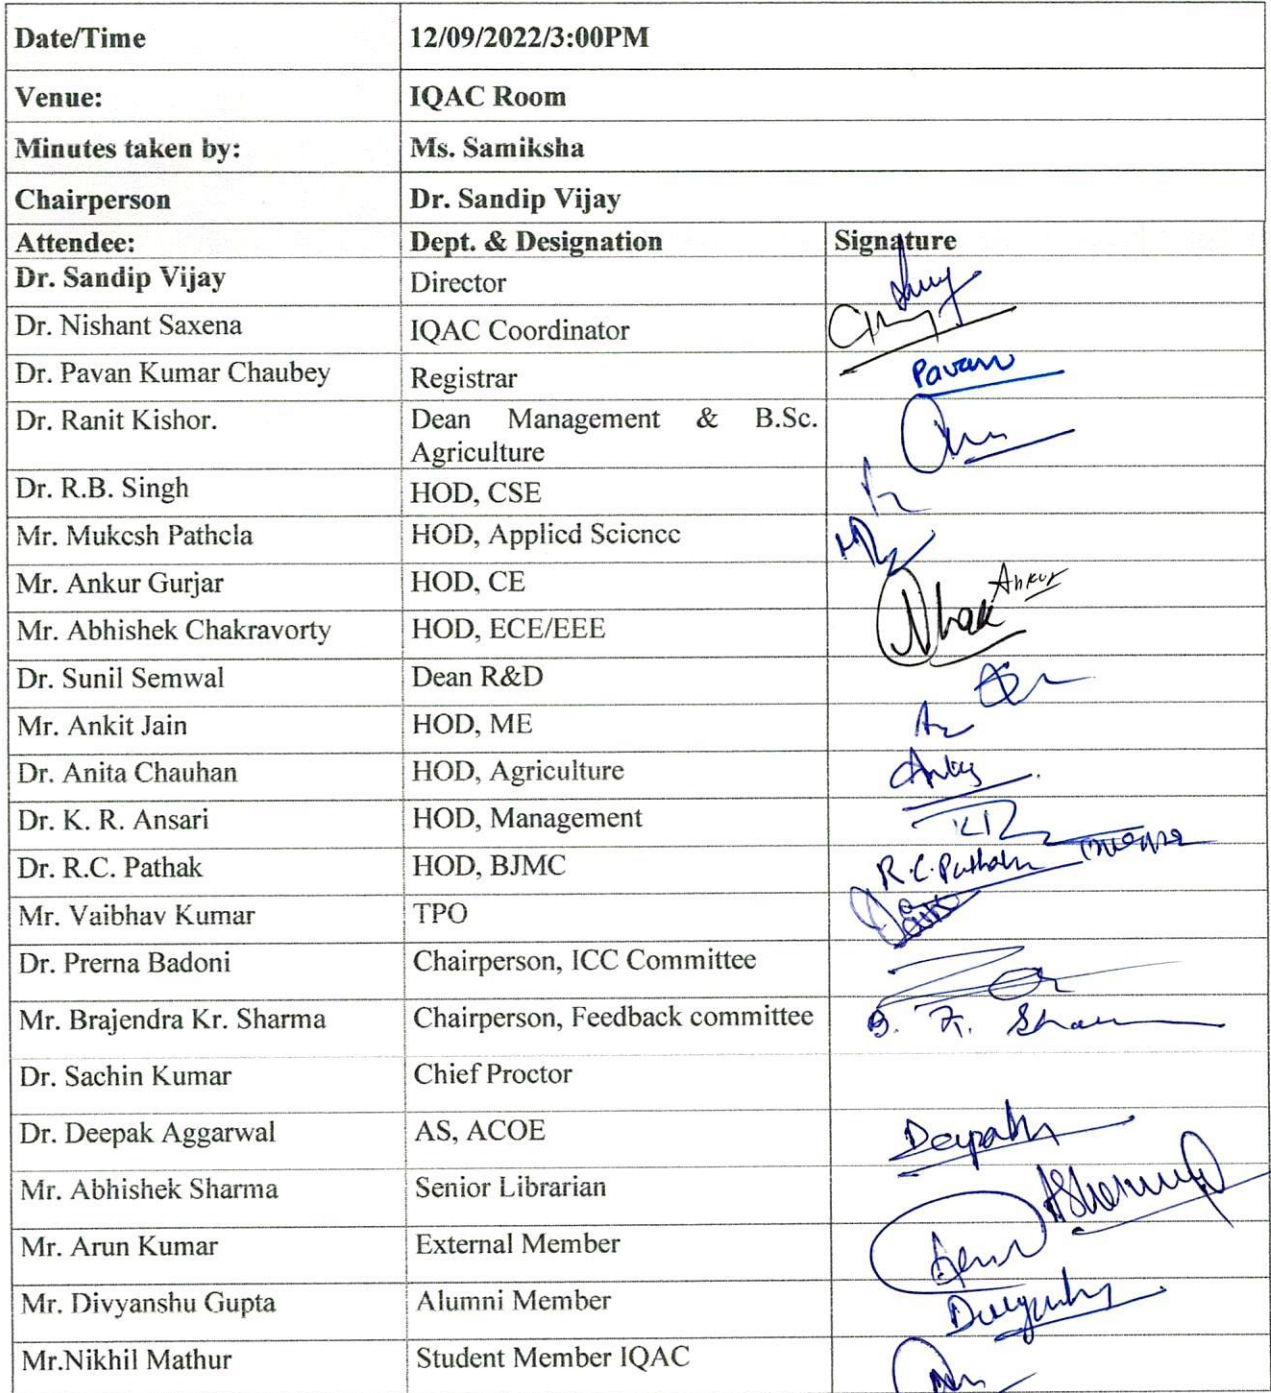 Date/Time 12/09/2022/3:00PM
Venue: IQAC Room
Minutes taken by: Ms. Samiksha
Chairperson Dr. Sandip Vijay
Attendee: Dept. & Designation Signature
Dr. Sandip Vijay Director
Dr. Nishant Saxena IQAC Coordinator
Dr. Pavan Kumar Chaubey Registrar Pavan
Dr. Ranit Kishor. Dean Management & B.Sc.
Agriculture
Dr. R.B. Singh HOD, CSE
Mr. Mukesh Pathela HOD, Applied Science
Mr. Ankur Gurjar HOD, CE Ankur
Mr. Abhishek Chakravorty HOD, ECE/EEE
Dr. Sunil Semwal Dean R&D
Mr. Ankit Jain HOD, ME
Dr. Anita Chauhan HOD, Agriculture
Dr. K. R. Ansari HOD, Management
Dr. R.C. Pathak HOD, BJMC R.C. Pathak
Mr. Vaibhav Kumar TPO
Dr. Prerna Badoni Chairperson, ICC Committee
Mr. Brajendra Kr. Sharma Chairperson, Feedback committee
Dr. Sachin Kumar Chief Proctor
Dr. Deepak Aggarwal AS, ACOE Deepak
Mr. Abhishek Sharma Senior Librarian
Mr. Arun Kumar External Member
Mr. Divyanshu Gupta Alumni Member
Mr.Nikhil Mathur Student Member IQAC